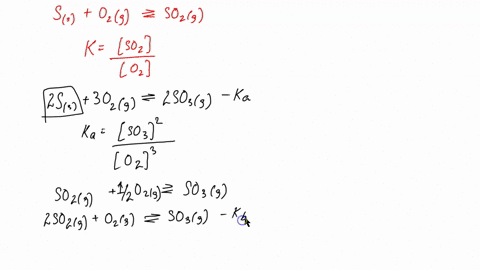 S(s) + O2(g) ⇌ SO2(g)
K = [SO2] / [O2]
2S(s) + 3O2(g) ⇌ 2SO3(g) – Ka
Ka = [SO3]^2 / [O2]^3
SO2(g) + 1/2 O2(g) ⇌ SO3(g)
2SO2(g) + O2(g) ⇌ SO3(g) –